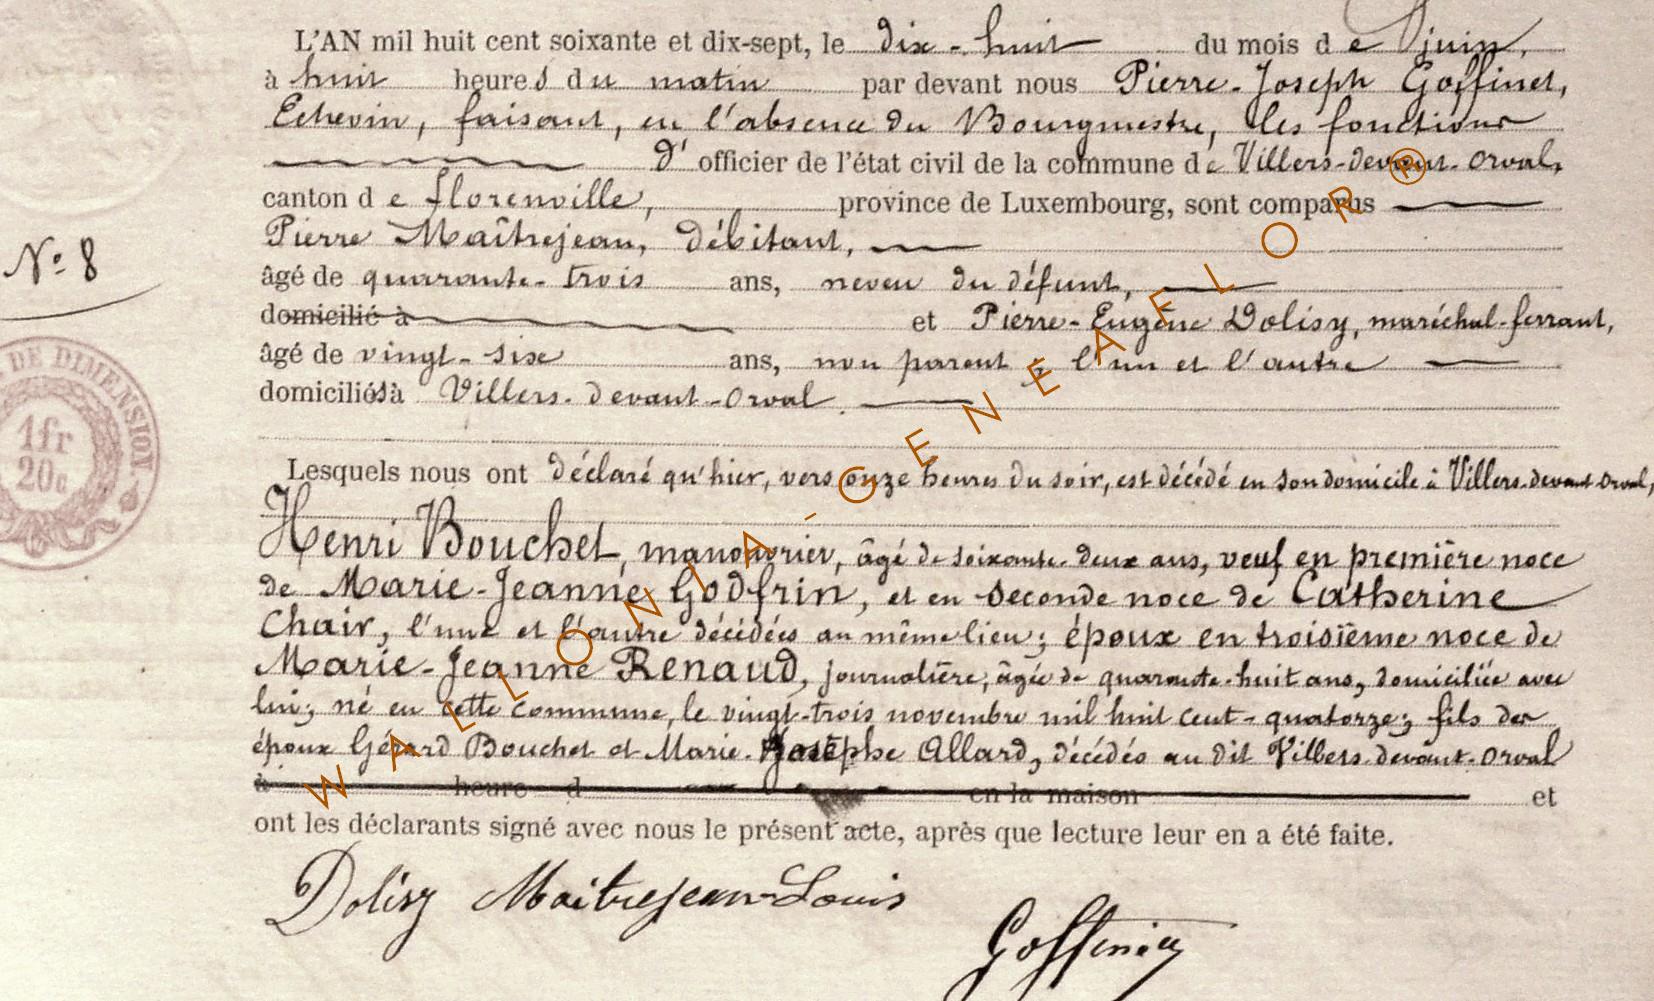 L'AN mil huit cent soixante et dix-sept, le dix-huit du mois de Juin,
à huit heures du matin par devant nous Pierre-Joseph Goffinet,
Echevin, faisant, en l'absence du Bourgmestre, les fonctions
d'officier de l'état civil de la commune de Villers-devant-Orval,
canton de florenville, province de Luxembourg, sont comparus
Pierre Maîtrejean, débitant,
N° 8
âgé de quarante-trois ans, neveu du défunt,
domicilié à et Pierre-Eugène Dolisy, maréchal-ferrant,
âgé de vingt-six ans, non parent ; l'un et l'autre
domiciliés à Villers-devant-Orval.
DE DIMENSION.
1fr
20c
Lesquels nous ont déclaré qu'hier, vers onze heures du soir, est décédé en son domicile à Villers-devant-Orval,
Henri Bouchet, manouvrier, âgé de soixante-deux ans, veuf en première noce
de Marie-Jeanne Godfrin, et en seconde noce de Catherine
Chair, l'une et l'autre décédées au même lieu; époux en troisième noce de
Marie-Jeanne Renaud, journalière, âgée de quarante-huit ans, domiciliée avec
lui; né en cette commune, le vingt-trois novembre mil huit cent-quatorze; fils des
époux Gérard Bouchet et Marie-Josèphe Allard, décédés au dit Villers-devant-Orval
à heure d en la maison et
ont les déclarants signé avec nous le présent acte, après que lecture leur en a été faite.
Dolisy Maitrejean-Louis
Goffinet
WALLONIA-GENEAFLOR®